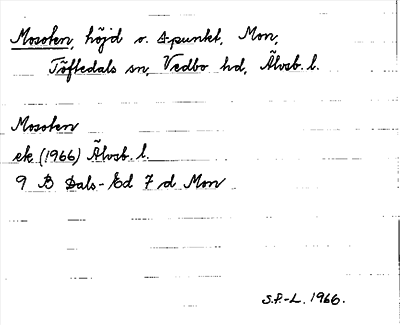 Mosoten, höjd o. △punkt, Mon,
Töftedals sn, Vedbo hd, Älvsb. l.
Mosoten
ek (1966) Älvsb. l.
9 B Dals-Ed 7 d Mon
S.P.-L. 1966.